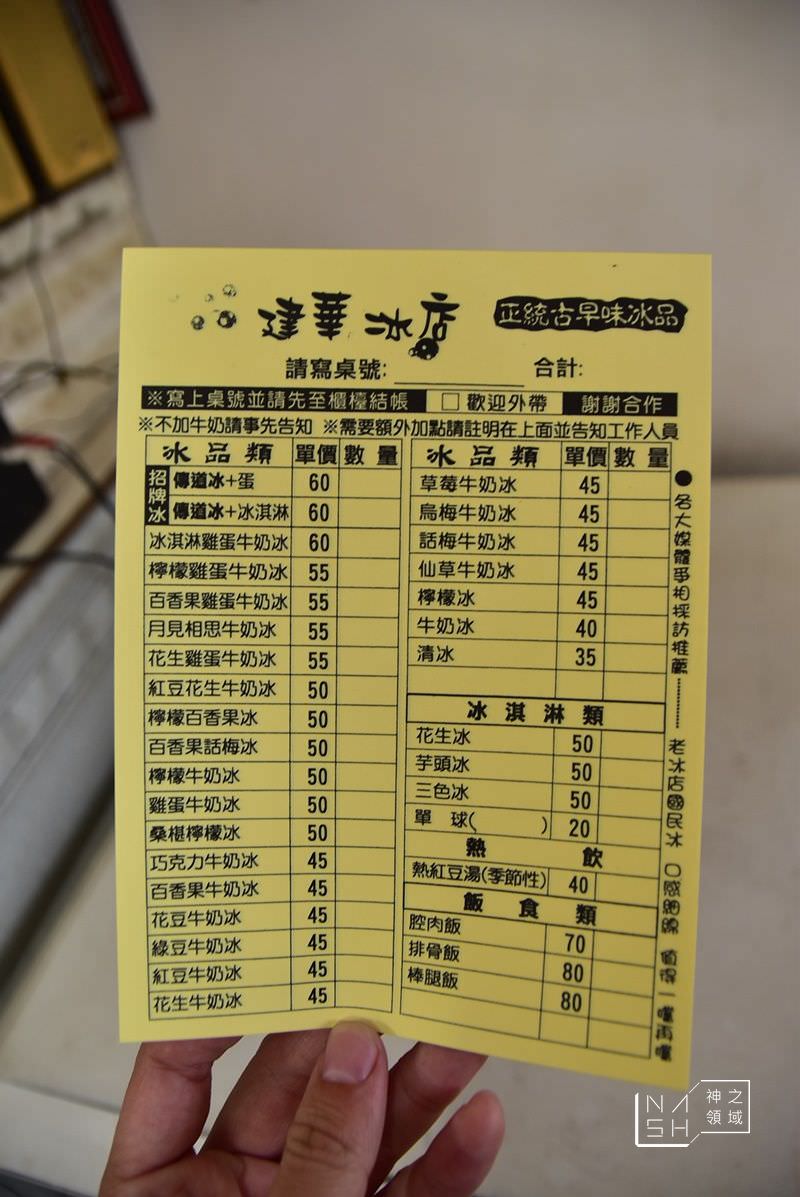 建華冰店
正統古早味冰品
請寫桌號:
合計:
※寫上桌號並請先至櫃檯結帳
□ 歡迎外帶
謝謝合作
※不加牛奶請事先告知 ※需要額外加點請註明在上面並告知工作人員
冰品類 單價 數量
招牌冰
傳道冰+蛋 60
傳道冰+冰淇淋 60
冰淇淋雞蛋牛奶冰 60
檸檬雞蛋牛奶冰 55
百香果雞蛋牛奶冰 55
月見相思牛奶冰 55
花生雞蛋牛奶冰 55
紅豆花生牛奶冰 50
檸檬百香果冰 50
百香果話梅冰 50
檸檬牛奶冰 50
雞蛋牛奶冰 50
桑椹檸檬冰 50
巧克力牛奶冰 45
百香果牛奶冰 45
花豆牛奶冰 45
綠豆牛奶冰 45
紅豆牛奶冰 45
花生牛奶冰 45
冰品類 單價 數量
草莓牛奶冰 45
烏梅牛奶冰 45
話梅牛奶冰 45
仙草牛奶冰 45
檸檬冰 45
牛奶冰 40
清冰 35
冰淇淋類
花生冰 50
芋頭冰 50
三色冰 50
單 球( ) 20
熱飲
熱紅豆湯(季節性) 40
飯食類
腔肉飯 70
排骨飯 80
棒腿飯 80
●各大媒體爭相採訪推薦………老冰店國民冰 口感細緻 值得一嚐再嚐
NASH
神之領域